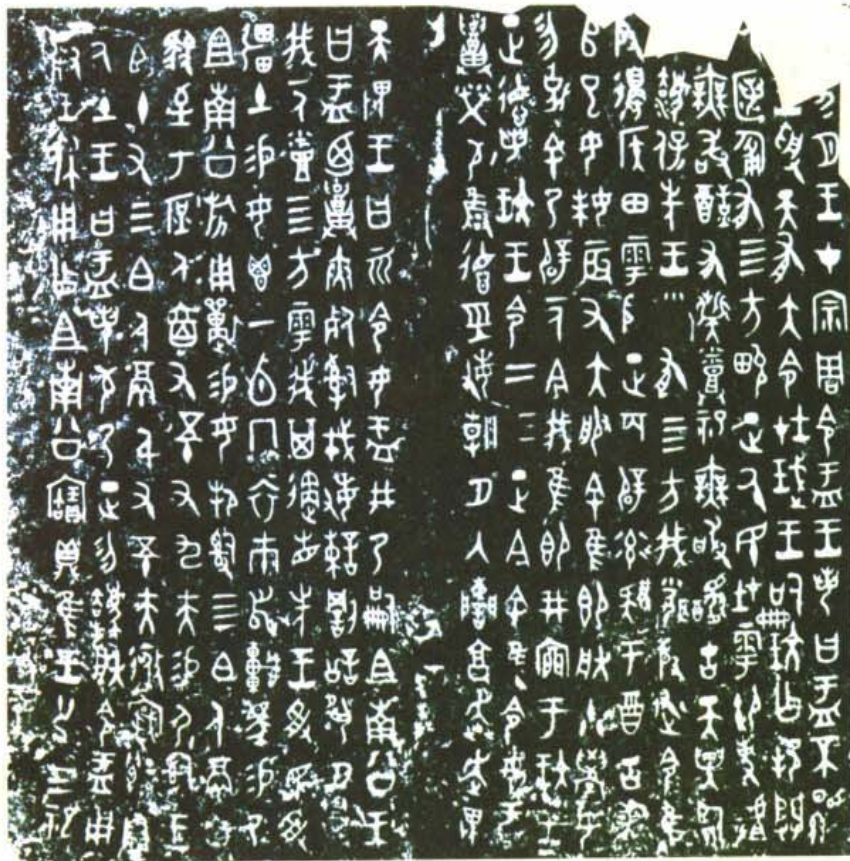 九月王才宗周令盂王若曰盂不顯
玟王受天有大令在珷王嗣玟乍邦闢
匿匍有四方畯正氒民在雩御事
無敢酖有祡烝祀無敢古天異臨
灋保先王有四方我聞殷述令隹
殷邊侯田雩殷正百辟率肄于酉古喪
𠂤已女妹辰又大服余隹即朕小學女
勿余乃辟一人今我隹即井于玟王
正德若玟王令二三正今余隹令女盂
榮敬德巠敏朝夕入諫享奔走畏
天畏王曰令女盂井乃嗣且南公王
曰盂迺夾死司戎敏諫罰訟夙夕
我一人烝四方雩我其遹省先王受民受
疆土易女鬯一卣冂衣巿舄車馬易乃
且南公旂用易女邦司四白人鬲自
馭至于庶人六百又五十又九夫易尸司
王臣十又三白人鬲千又五十夫自
氒土王曰盂若敬乃正勿灋朕令盂用
對王休用乍且南公寶鼎隹王廿又三祀